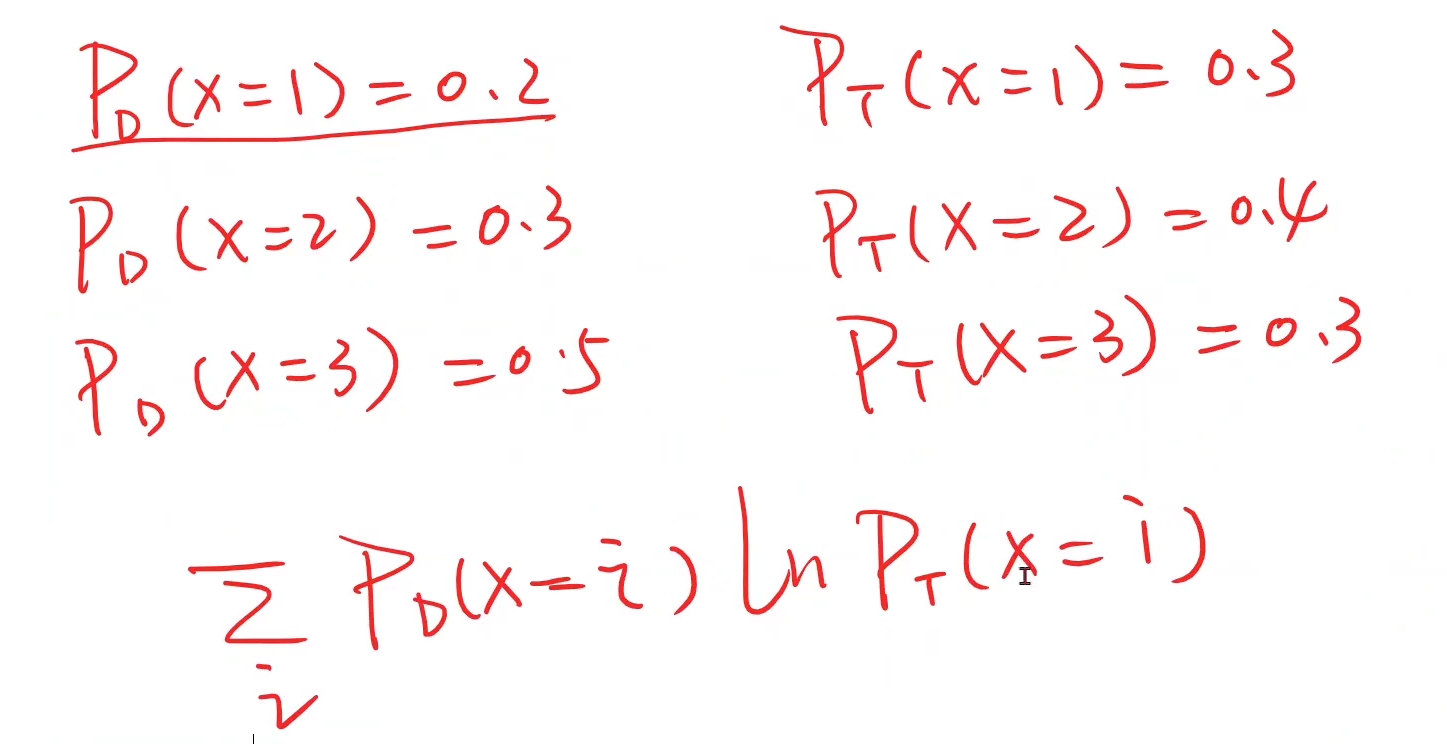 P_D(x=1)=0.2 P_T(x=1)=0.3
P_D(x=2)=0.3 P_T(x=2)=0.4
P_D(x=3)=0.5 P_T(x=3)=0.3
−∑_i P_D(x=i) ln P_T(x=i)